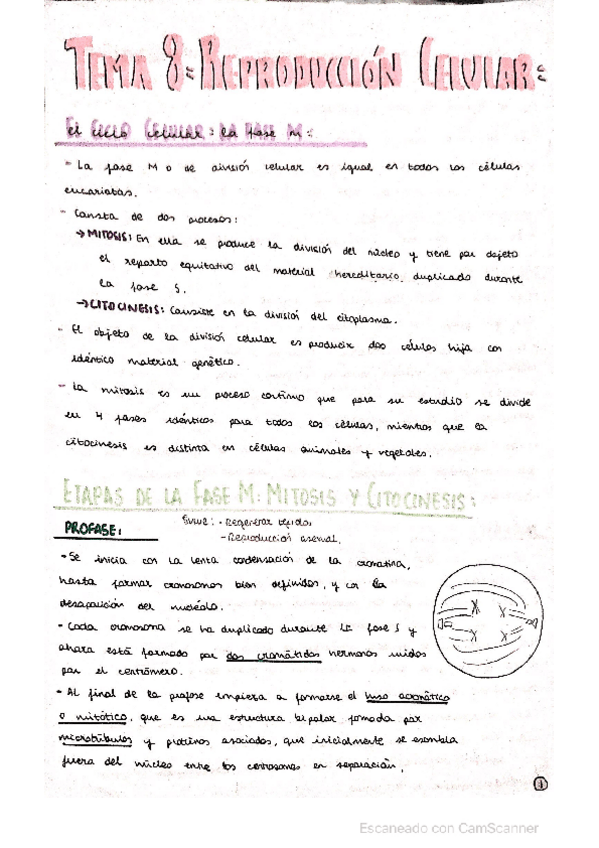 TEMA 8: REPRODUCCIÓN CELULAR:
El ciclo celular: la fase M:
- La fase M o de división celular es igual en todas las células
eucariotas.
- Consta de dos procesos:
→ MITOSIS: En ella se produce la división del núcleo y tiene por objeto
el reparto equitativo del material hereditario, duplicado durante
la fase S.
→ CITOCINESIS: Consiste en la división del citoplasma.
- El objeto de la división celular es producir dos células hija con
idéntico material genético.
- La mitosis es un proceso continuo que para su estudio se divide
en 4 fases idénticas para todas las células, mientras que la
citocinesis es distinta en células animales y vegetales.
ETAPAS DE LA FASE M: MITOSIS Y CITOCINESIS:
Sirve: - Regenerar tejidos
- Reproducción asexual
PROFASE:
- Se inicia con la lenta condensación de la cromatina,
hasta formar cromosomas bien definidos, y con la
desaparición del nucléolo.
- Cada cromosoma se ha duplicado durante la fase S y
ahora está formado por dos cromátidas hermanas unidas
por el centrómero.
- Al final de la profase empieza a formarse el huso acromático
o mitótico, que es una estructura bipolar formada por
microtúbulos y proteínas asociadas, que inicialmente se ensambla
fuera del núcleo entre los centrosomas en separación.
1
Escaneado con CamScanner